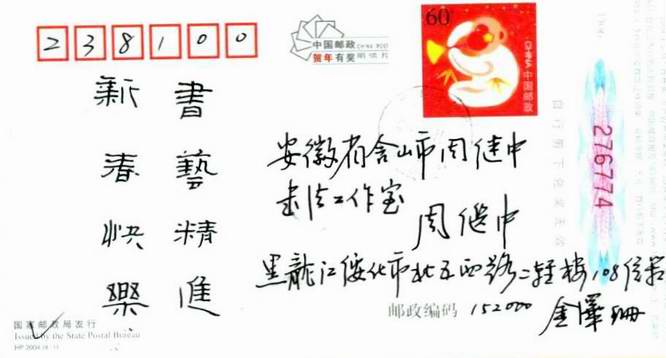 238100
中国邮政 CHINA POST
贺年有奖 明信片
60
CHINA 中国邮政
276774
書藝精進
新春快樂
安徽省含山市周继中
书法工作室
周继中
黑龍江绥化市北五西路二轻楼108信箱
邮政编码 152000
金澤珊
国家邮政局发行
Issued by the State Postal Bureau